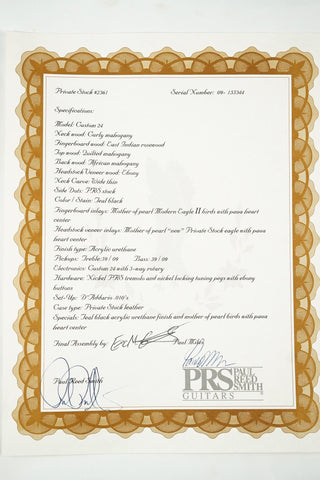 Private Stock #2361 Serial Number: 09- 153344
Specifications:
Model: Custom 24
Neck wood: Curly mahogany
Fingerboard wood: East Indian rosewood
Top wood: Quilted mahogany
Back wood: African mahogany
Headstock Veneer wood: Ebony
Neck Carve: Wide thin
Side Dots: PRS stock
Color / Stain: Teal black
Fingerboard inlays: Mother of pearl Modern Eagle II birds with paua heart center
Headstock veneer inlays: Mother of pearl "new" Private Stock eagle with paua heart center
Finish type: Acrylic urethane
Pickups: Treble:59 / 09 Bass: 59 / 09
Electronics: Custom 24 with 5-way rotary
Hardware: Nickel PRS tremolo and nickel locking tuning pegs with ebony buttons
Set-Up: D'Addario .010's
Case type: Private Stock leather
Specials: Teal black acrylic urethane finish and mother of pearl birds with paua heart center
Final Assembly by:
Paul Miles
Paul Reed Smith
PRS PAUL REED SMITH
GUITARS